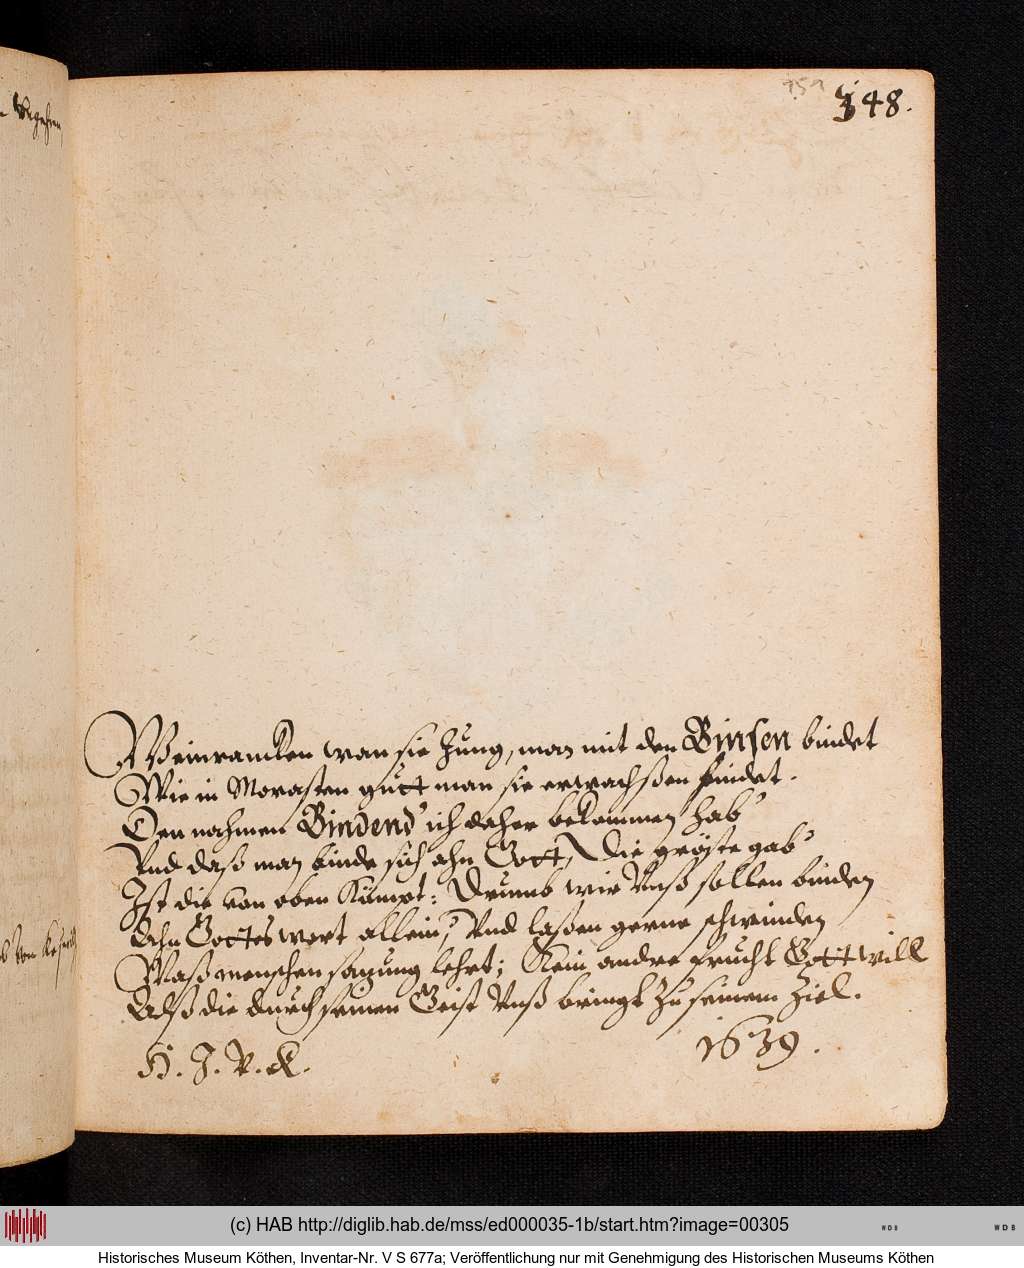 348.
Weinrancken wan sie Jung, man mit den Binsen bindet
Wie in Morasten gutt man sie erwachßen findet.
Den nahmen Bindend' ich daher bekommen hab'
Vnd daß man binde sich ahn Gott, Die gröste gab'
Ist die von oben Kömpt: Drumb wir Vnß sollen binden
Ahn Gottes wort allein, Vnd laßen gerne schwinden
Waß menschensatzung lehrt; Kein andre frucht Gott will
Alß die durch seinen Geist Vnß bringt Zu seinem Ziel.
H. J. V. K. 1639.
(c) HAB http://diglib.hab.de/mss/ed000035-1b/start.htm?image=00305
WDB
WDB
Historisches Museum Köthen, Inventar-Nr. V S 677a; Veröffentlichung nur mit Genehmigung des Historischen Museums Köthen